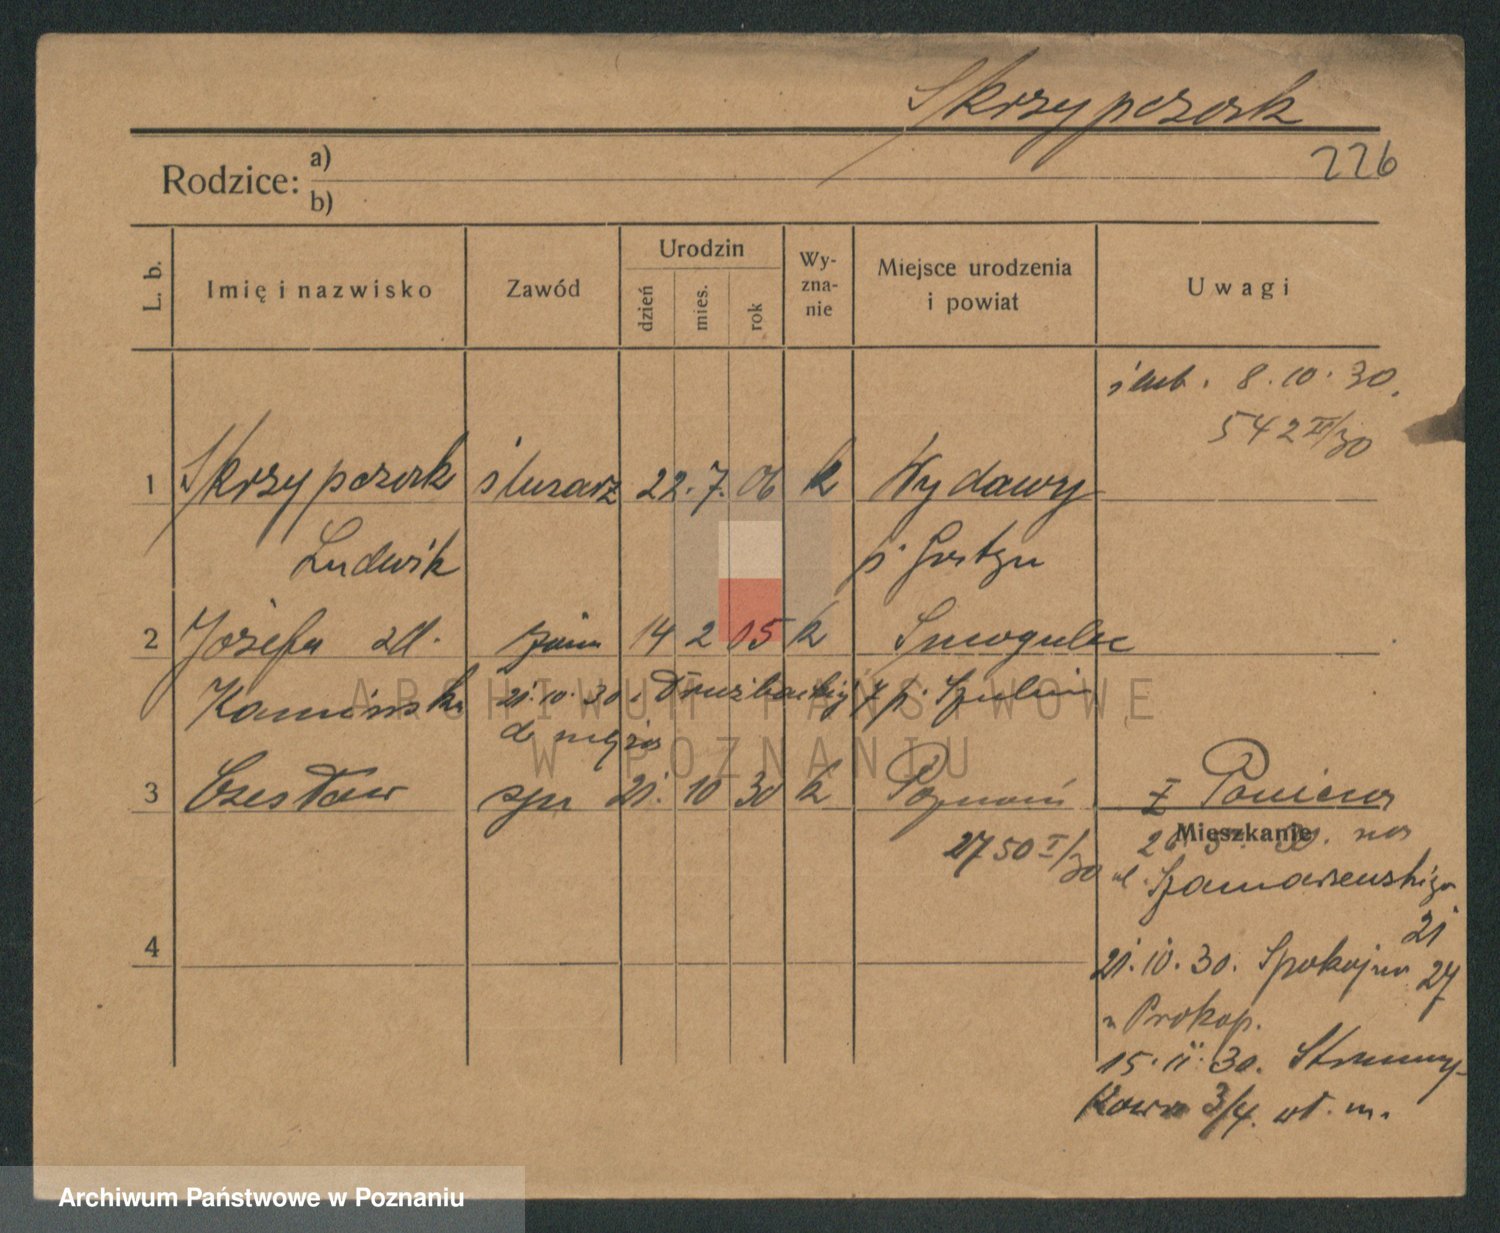 Skrzypczak
226
Rodzice: a)
b)
L. b.
Imię i nazwisko
Zawód
Urodzin
dzień
mies.
rok
Wy-
zna-
nie
Miejsce urodzenia
i powiat
Uwagi
ślub. 8.10.30.
542 II/30
1 Skrzypczak ślusarz 22. 7. 06 k Wydawy
Ludwik p. Gostyń
2 Józefa zd. żona 14 2 15 k Smogulec
Kamińska 21.10.30 z Drużbackiej 7 p. Szubin
do męża
3 Czesław syn 21. 10 30 k Poznań
2750 I/30
z Ponieca
Mieszkanie
ul. Szamarzewskiego
21
21.10.30. Spokojna 27
u Prokop.
15.11.30. Strumy-
kowa 3/4. wł. m.
4
ARCHIWUM PAŃSTWOWE
W POZNANIU
Archiwum Państwowe w Poznaniu